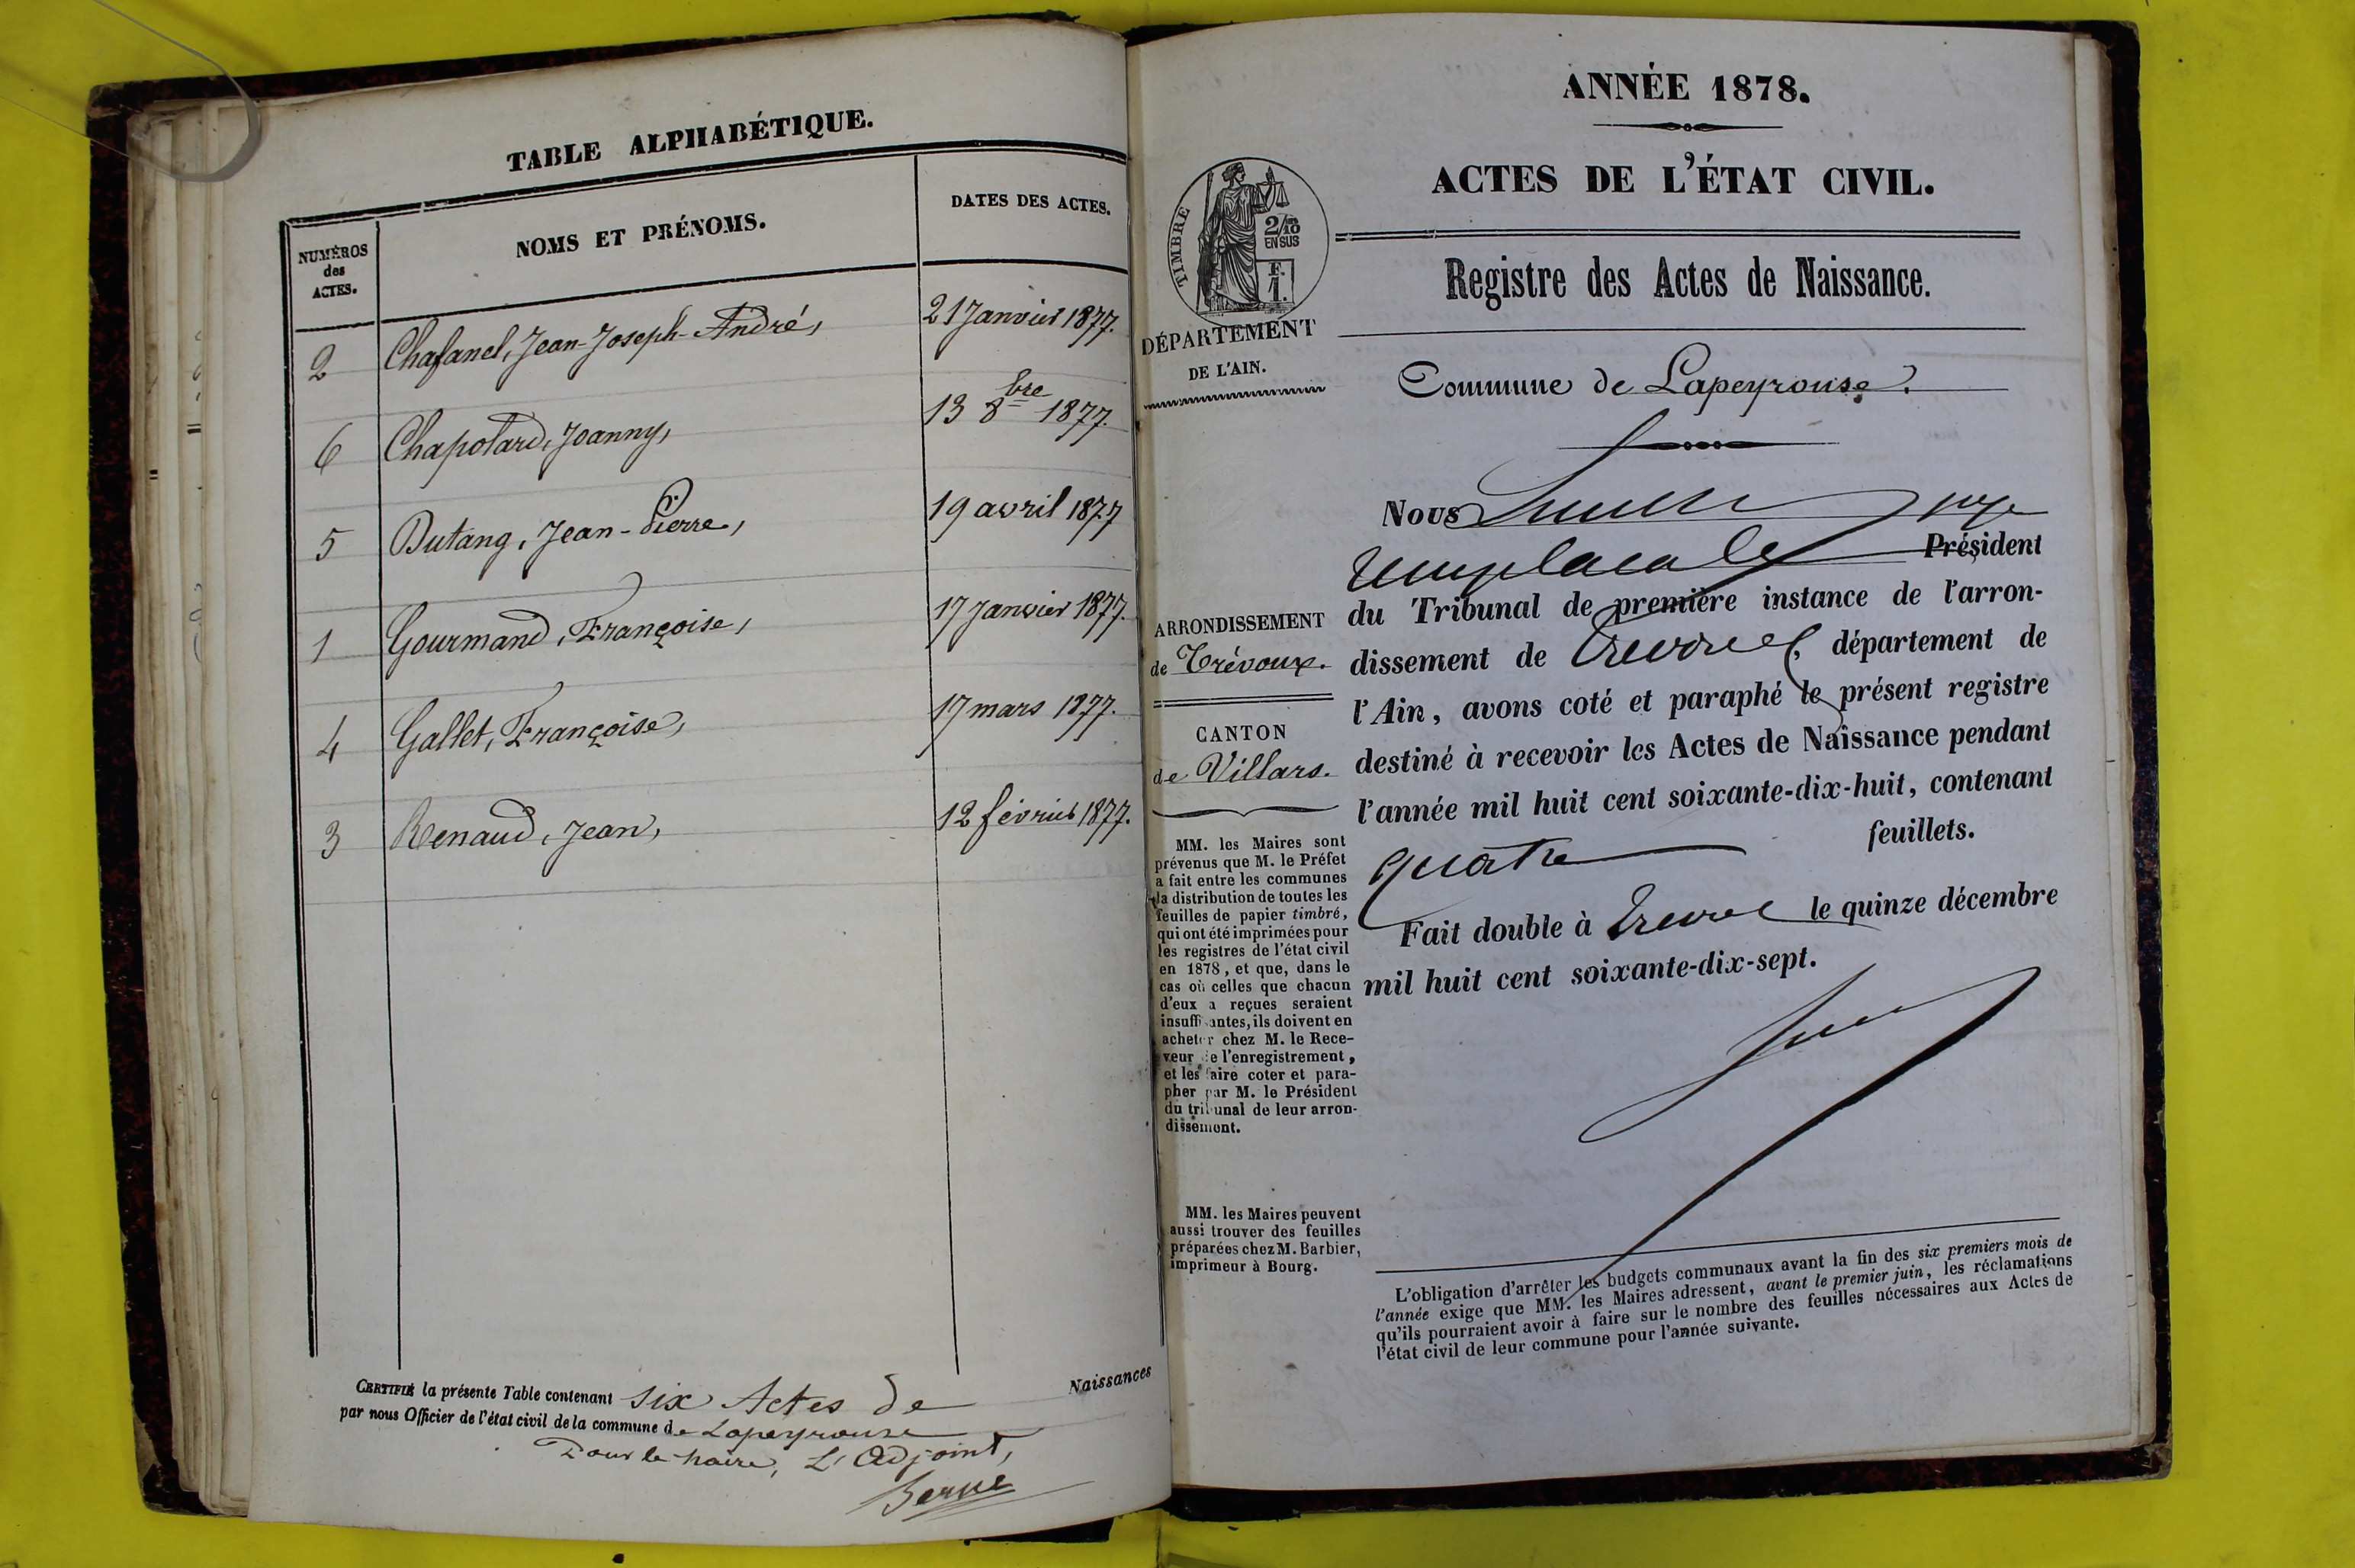 TABLE ALPHABÉTIQUE.
NUMÉROS
des
ACTES.
NOMS ET PRÉNOMS.
DATES DES ACTES.
2 Chafanel, Jean-Joseph-André, 21 Janvier 1877.
6 Chapolard, Joanny, 13 8bre 1877.
5 Dutang, Jean-Pierre, 19 avril 1877
1 Gourmand, Françoise, 17 Janvier 1877.
4 Gallet, Françoise, 17 mars 1877.
3 Renaud, Jean, 12 février 1877.
CERTIFIÉ la présente Table contenant six Actes de Naissances
par nous Officier de l'état civil de la commune de Lapeyrouse
Pour le maire, L'Adjoint,
ANNÉE 1878.
ACTES DE L'ÉTAT CIVIL.
TIMBRE
2/10
EN SUS
F.
1.
DÉPARTEMENT
DE L'AIN.
Registre des Actes de Naissance.
Commune de Lapeyrouse.
ARRONDISSEMENT
de Trévoux.
CANTON
de Villars.
MM. les Maires sont
prévenus que M. le Préfet
a fait entre les communes
la distribution de toutes les
feuilles de papier timbré,
qui ont été imprimées pour
les registres de l'état civil
en 1878, et que, dans le
cas où celles que chacun
d'eux a reçues seraient
insuffisantes, ils doivent en
acheter chez M. le Rece-
veur de l'enregistrement,
et les faire coter et para-
pher par M. le Président
du tribunal de leur arron-
dissement.
MM. les Maires peuvent
aussi trouver des feuilles
préparées chez M. Barbier,
imprimeur à Bourg.
Nous juge
Président
du Tribunal de première instance de l'arron-
dissement de Trevoux, département de
l'Ain, avons coté et paraphé le présent registre
destiné à recevoir les Actes de Naissance pendant
l'année mil huit cent soixante-dix-huit, contenant
quatre feuillets.
Fait double à Trevoux le quinze décembre
mil huit cent soixante-dix-sept.
L'obligation d'arrêter les budgets communaux avant la fin des six premiers mois de
l'année exige que MM. les Maires adressent, avant le premier juin, les réclamations
qu'ils pourraient avoir à faire sur le nombre des feuilles nécessaires aux Actes de
l'état civil de leur commune pour l'année suivante.